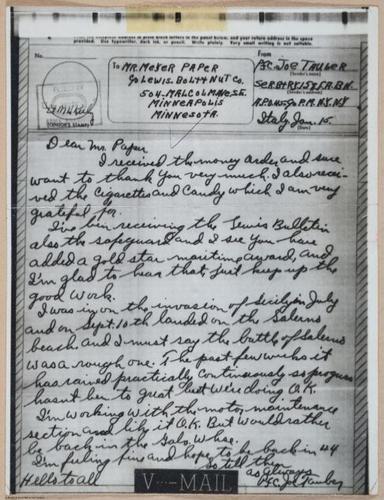 No.
To
MR. MOYER PAPER
C/o LEWIS BOLT & NUT Co.
504 MALCOLM AVE. S.E.
MINNEAPOLIS
MINNESOTA.
From
PFC. JOE TAUBER
(Sender's name)
SER. BTRY. 158 F.A. BN.
(Sender's address)
A.P.O. 45 % P.M. N.Y. N.Y.
Italy Jan. 15.
(Date)
(CENSOR'S STAMP)
Dear Mr. Paper.
I received the money order and sure
want to thank you very much. I also recei-
ved the Cigarettes and Candy which I am very
grateful for.
I've been receiving the Lewis Bulletin
also the safeguard and I see you have
added a gold star maritime award, and
I'm glad to hear that, just keep up the
good work.
I was in on the invasion of Sicily in July
and on Sept. 10th landed on the Salerno
beach and I must say the battle of Salerno
was a rough one. The past few weeks it
has rained practically continuously so progress
hasn't been to great but we're doing O.K.
I'm working with the motor maintenance
section and like it O.K. But would rather
be back in the Galv. Whse.
I'm feeling fine and hope to be back in 44
So till then
as always
Hello to all
Pfc. Joe Tauber
V···-MAIL